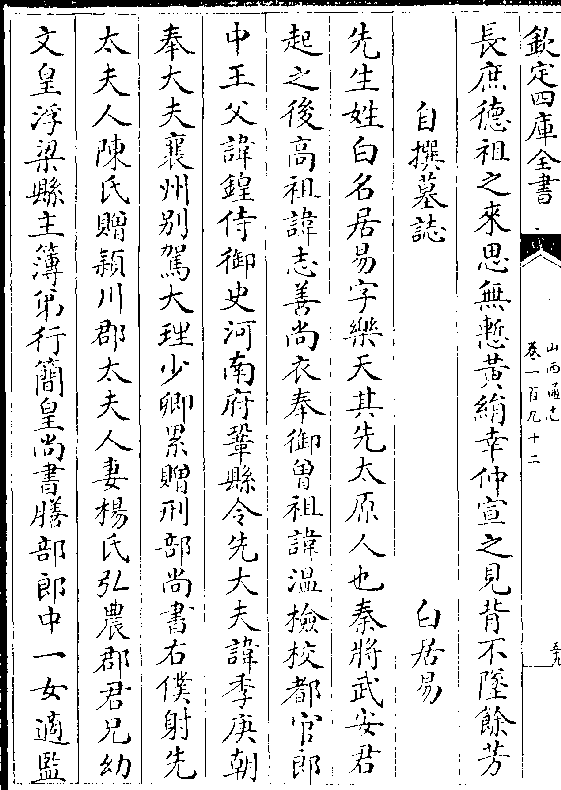 欽定四庫全書
山西通志
卷一百九十二
五九
長庶德祖之來思無慙黃絹幸仲宣之見背不墜餘芳
自撰墓誌 白居易
先生姓白名居易字樂天其先太原人也秦將武安君
起之後高祖諱志善尚衣奉御曽祖諱溫檢校都官郎
中王父諱鍠侍御史河南府鞏縣令先大夫諱季庚朝
奉大夫襄州别駕大理少卿累贈刑部尚書右僕射先
太夫人陳氏贈潁川郡太夫人妻楊氏弘農郡君兄㓜
文皇浮梁縣主簿弟行簡皇尚書膳部郎中一女適監